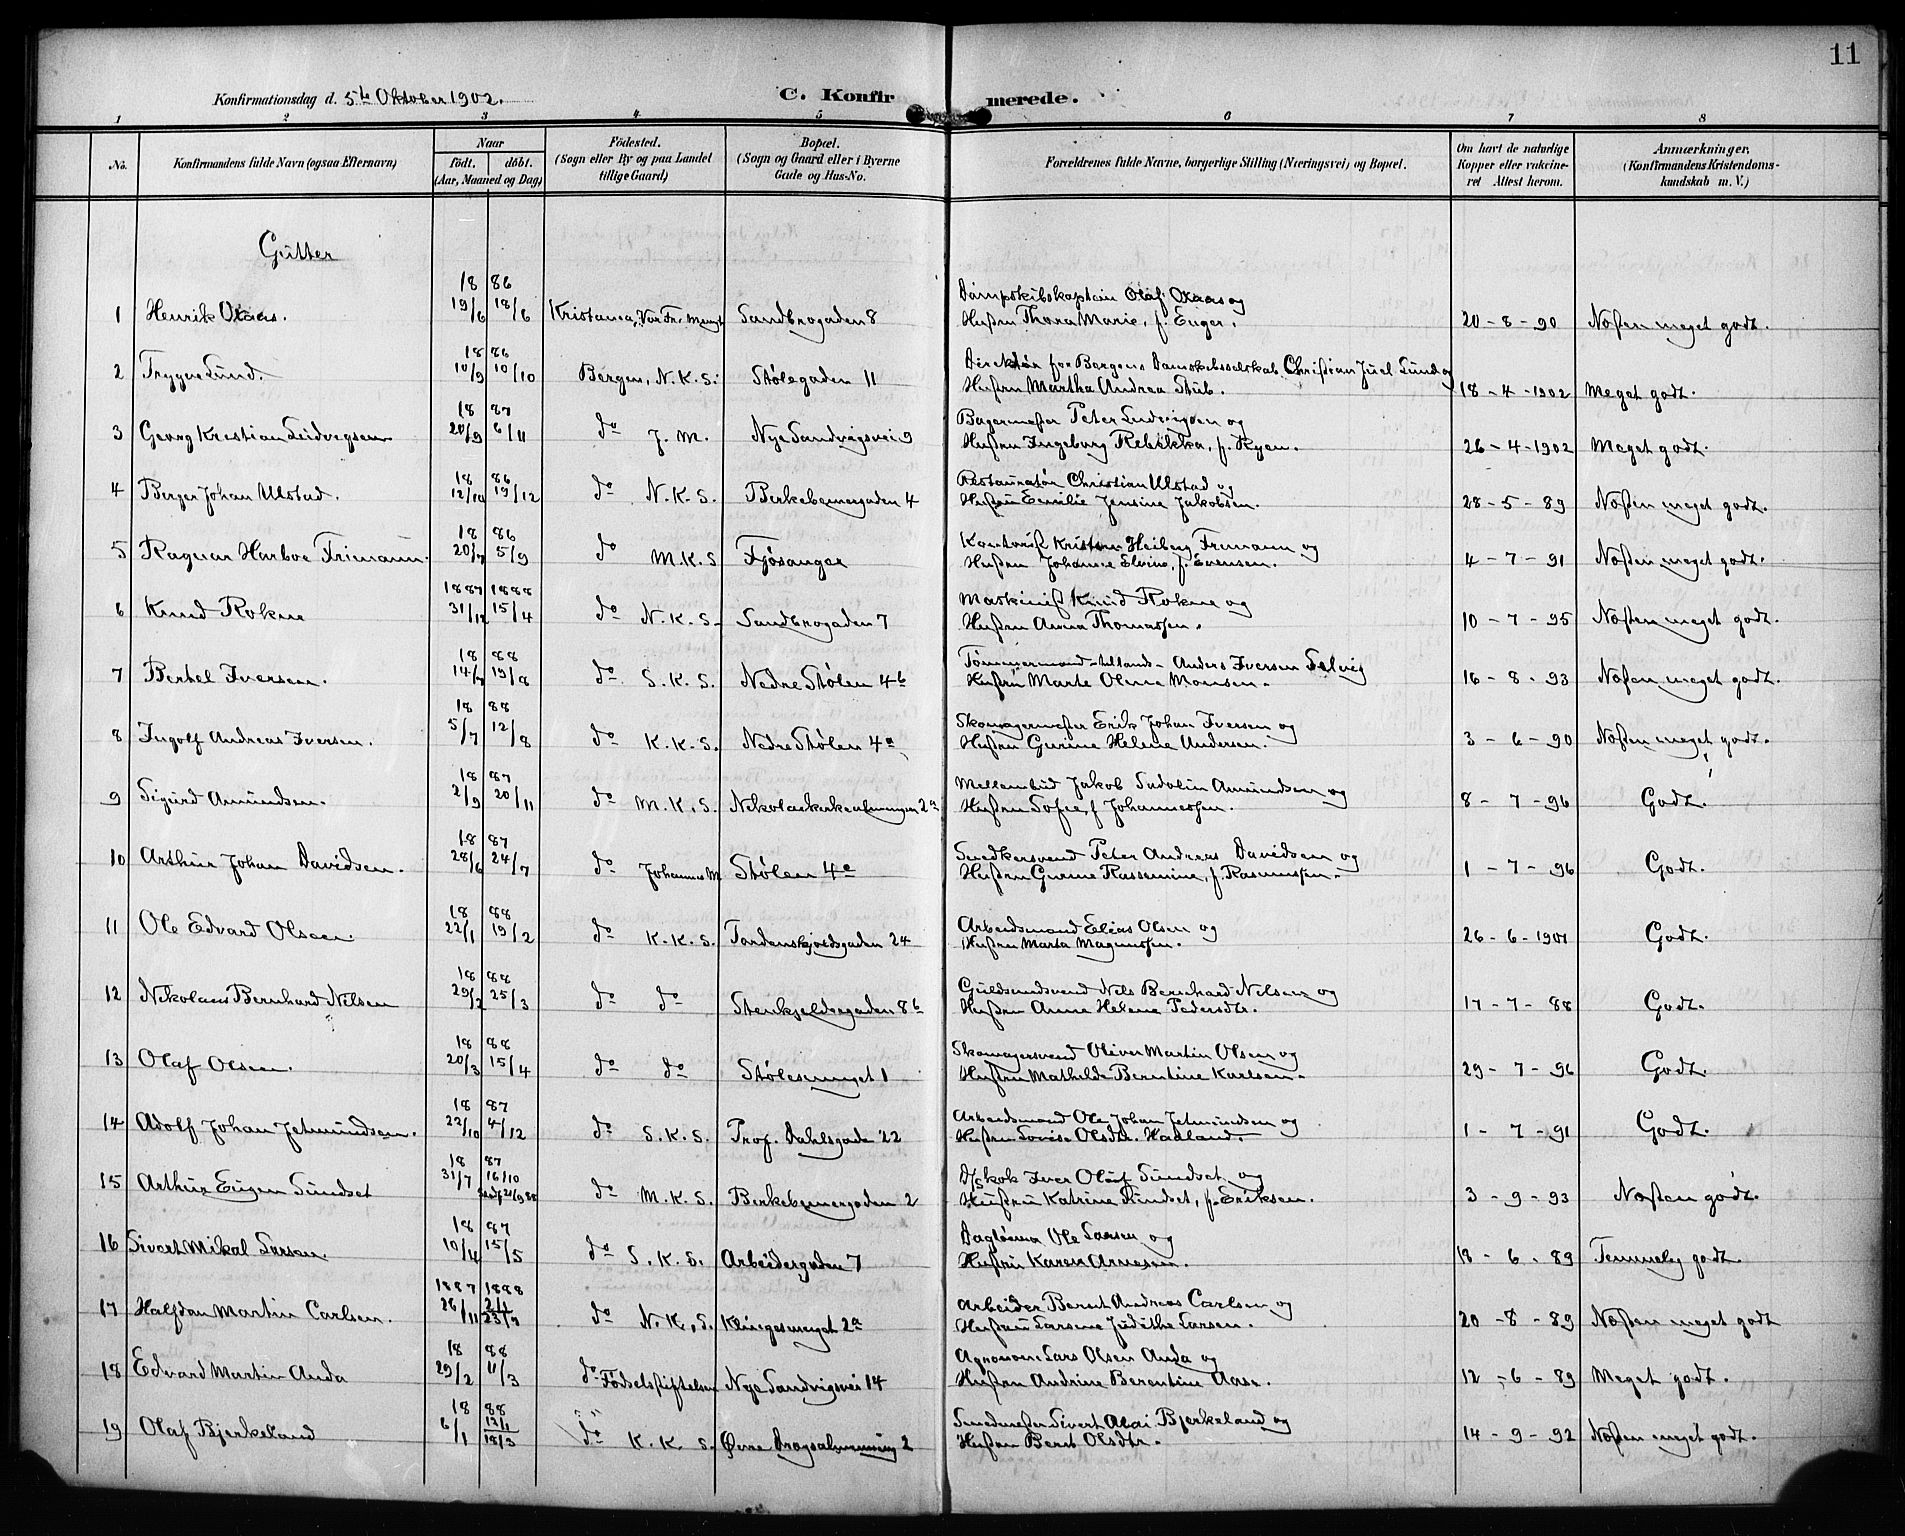 11
Konfirmationsdag d. 5te Oktober 1902.
C. Konfirmerede.
1 2 3 4 5 6 7 8
No.
Konfirmandens fulde Navn (ogsaa Efternavn)
Naar
født. døbt.
(Aar, Maaned og Dag)
Fødested.
(Sogn eller By og paa Landet
tillige Gaard)
Bopæl.
(Sogn og Gaard eller i Byerne
Gade og Hus-No.
Forældrenes fulde Navne, borgerlige Stilling (Næringsvei) og Bopæl.
Om havt de naturlige
Kopper eller vakcine-
ret Attest herom.
Anmærkninger.
(Konfirmandens Kristendoms-
kundskab m. V.)
Gutter
18 86
Dampskibskaptein Olaf og
1 Henrik 19/6 18/6 Kristiania, Vor Fr. Sandbrogaden 8 Hustru Thora Marie, f. Enger. 20-8-90 Næsten meget godt.
18 86
Direktør for Bergens Damskibsselskab Christian Juel Lund og
2 Trygve Lund. 10/9 10/10 Bergen, N.K.S. Stølegaden 11 Hustru Martha Andrea Stub. 18-4-1902 Meget godt.
18 87
Bagermester Peter Ludvigsen og
3 Georg Kristian Ludvigsen 20/9 6/11 do J.M. Nye Sandvigsvei 9 Hustru Ingeborg Rebekka, f. Ryen. 26-4-1902 Meget godt.
18 86
Restauratør Christian Ulstad og
4 Berger Johan Ulstad. 12/10 19/12 do N.K.S. Berkebeinergaden 4 Hustru Emilie Jensine Jakobsen. 28-5-89 Næsten meget godt.
18 86
Kontorist Kristen Heiberg Frimann og
5 Ragnar Harboe Frimann. 20/7 5/9 do M.K.S Fjøsanger Hustru Johanne Elvine, f. Evensen. 4-7-91 Næsten meget godt.
1887 1888
Maskinist Knud Rokne og
6 Knud Rokne 31/12 15/4 do N.K.S. Sandbrogaden 7 Hustru Anna Thomassen. 10-7-95 Næsten meget godt.
18 88
Tømmermand - tillands - Anders Iversen Selvig
7 Bertel Iversen. 14/7 19/8 do S.K.S. Nedre Stølen 4b Hustru Marte Oline Monsen. 16-8-93 Næsten meget godt.
18 88
Skomagermester Erik Johan Iversen og
8 Ingolf Andreas Iversen. 5/7 12/8 do K.K.S. Nedre Stølen 4a Hustru Gurine Helene Andersen. 3-6-90 Næsten meget godt.
18 87
Mellembud Jakob Sadolin Amundsen og
9 Sigurd Amundsen. 2/9 20/11 do M.K.S. Nikolaikirkealmenningen 2a Hustru Sofie, f Johannessen. 8-7-96 Godt.
18 87
Snedkersvend Peter Andreas Davidsen og
10 Arthur Johan Davidsen. 28/6 24/7 do Johannes M Stølen 4e Hustru Gurine Rassemine, f. Rasmussen. 1-7-96 Godt.
18 88
Arbeidsmand Elias Olsen og
11 Ole Edvard Olsen. 22/1 19/2 do K.K.S. Tordenskjoldsgaden 24 Hustru Marta Magnussen. 26-6-1901 Godt.
18 88
Guldsmedsvend Nils Bernhard Nilsen og
12 Nikolaus Bernhard Nilsen 29/2 25/3 do do Stenkjeldergaden 8b Hustru Anne Helene Pedersdtr. 17-7-88 Godt.
18 88
Skomagersvend Oliver Martin Olsen og
13 Olaf Olsen. 20/3 15/4 do do Stølesmuget 1 Hustru Mathilde Berntine Karlsen. 29-7-96 Godt.
18 87
Arbeidsmand Ole Johan Jetmundsen og
14 Adolf Johan Jetmundsen. 22/10 4/12 do S.K.S. Prof. Dahlsgade 22 Hustru Lovise Olsdtr. Hadland. 1-7-91 Godt.
18 87
D/skok Iver Oluf Sundset og
15 Arthur Eugen Sundset 31/7 16/10 do M.K.S. Berkebeinergaden 2 Hustru Katrine Sundset, f. Eriksen. 3-9-93 Næsten godt.
18 87
Dagløner Ole Larsen og
16 Sivert Mikal Larsen. 10/4 15/5 do S.K.S. Arbeidergaden 7 Hustru Karen Arnesen. 18-6-89 Temmelig godt.
1887 1888
Arbeider Berent Andreas Carlsen og
17 Halfdan Martin Carlsen. 26/11 2/1 23/9 do N.K.S. Klingesmuget 2a Hustru Larsine Judithe Larsen. 20-8-89 Næsten meget godt
18 88
Agronom Lars Olsen Anda og
18 Edvard Martin Anda 29/2 11/3 do Fødselsstiftelsen Nye Sandvigsvei 14 Hustru Andrine Berentine Aase. 12-6-89 Meget godt.
18 88
Smedmester Sivert Bjerkeland og
19 Olaf Bjerkeland 6/1 12/1 18/3 do K.K.S. Øvre Dragsalmenning 2 Hustru Berit Olsdtr. 14-9-92 Næsten meget godt.